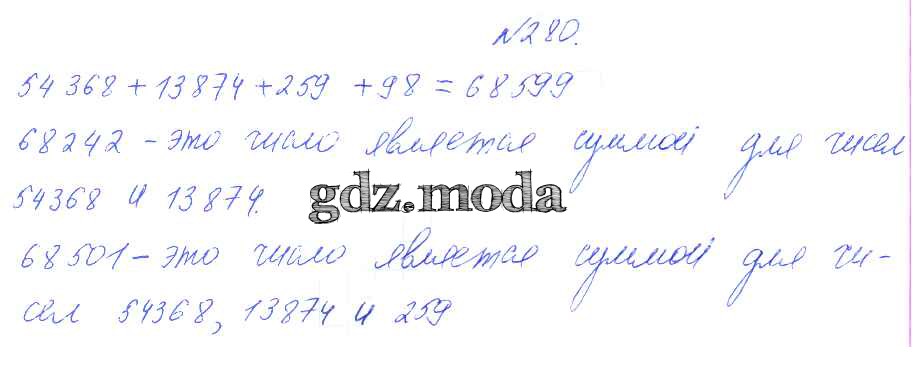 №280.
54 368 + 13874 + 259 + 98 = 68599
68242 - это число является суммой для чисел
54368 и 13874.
gdz.moda
68501 - это число является суммой для чи-
сел 54368, 13874 и 259